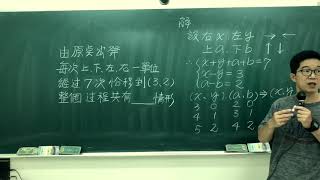 由原點出發
每次上.下.左.右一單位
經過7次恰移到(3,2)
整個過程共有____情形
解
設右x.左y → ←
上a.下b ↑ ↓
{x+y+a+b=7
x-y=3
a-b=2
(x, y);(a.b)⇒(x,y
3 0 2 0
4 1 3 1
5 2 4 2